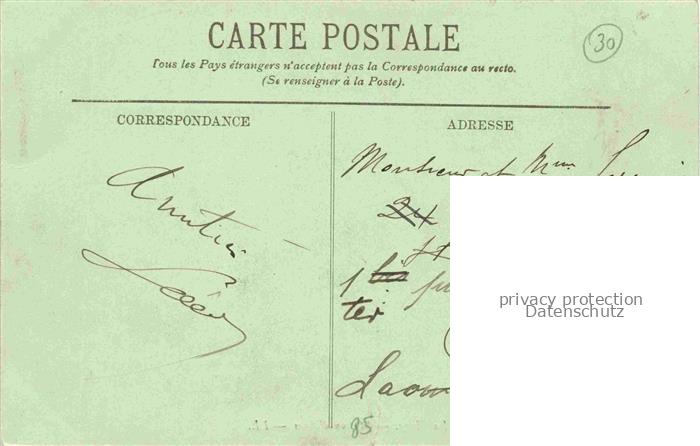 CARTE POSTALE
30
Tous les Pays étrangers n'acceptent pas la Correspondance au recto.
(Se renseigner à la Poste).
CORRESPONDANCE
ADRESSE
Amitiés
Monsieur et Mme
24
1 bis
ter
85
privacy protection
Datenschutz